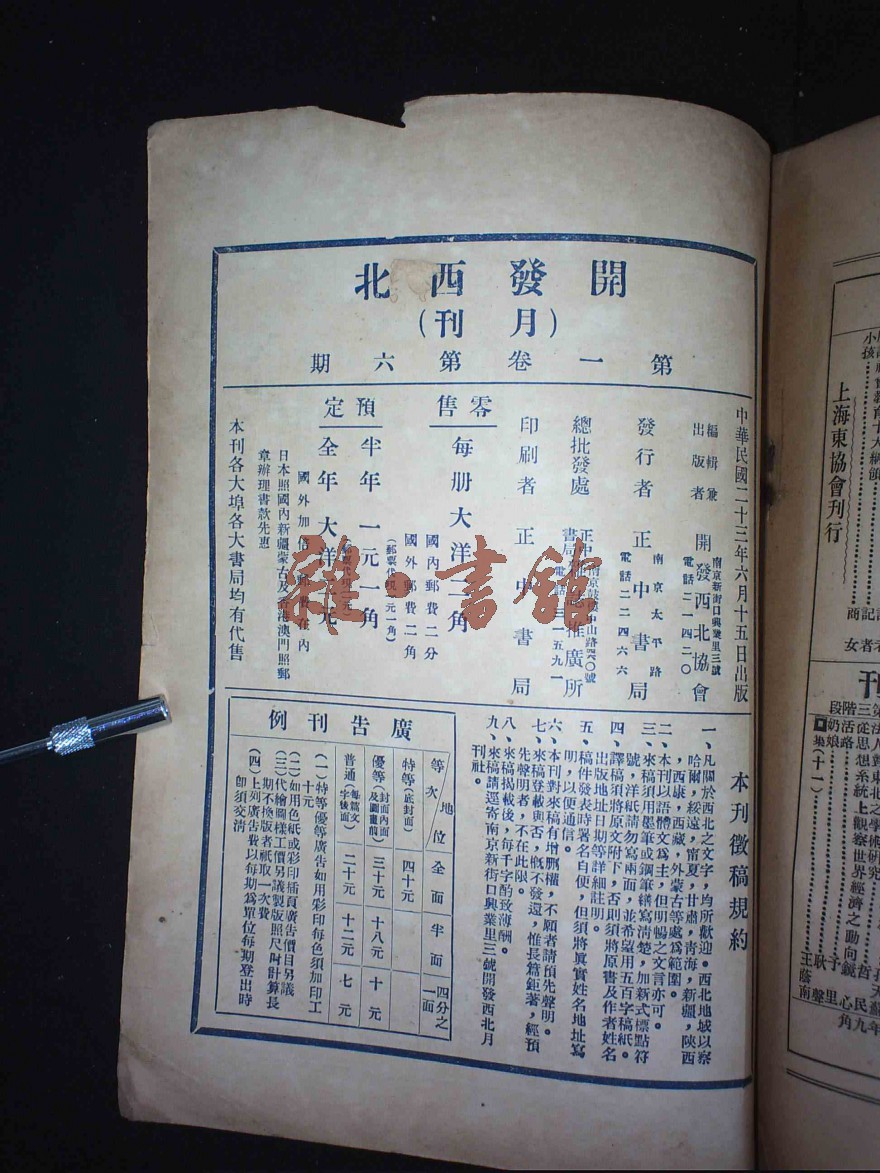 開發西北
（月刊）
第一卷第六期
中華民國二十三年六月十五日出版
編輯兼
出版者
開發西北協會
南京新街口興業里三號
電話二一四二〇
發行者
正中書局
南京太平路
電話二二四六六
總批發處
印刷者
正中書局
零售
每册大洋二角
國內郵費二分
國外郵費二角
預定
半年一元一角
全年大洋二元
國外加倍郵費在內
日本照國內新疆蒙古及香港澳門照郵
章辦理書款先惠
本刊各大埠各大書局均有代售
本刊徵稿規約
一、凡關於西北之文字，均所歡迎。西北地域以察
哈爾，綏遠，甯夏，甘肅，青海，新疆，陝西
，西康，西藏，外蒙古等處爲範圍。
二、本刊以語體文爲主，但明暢之文言亦可。
三、來稿須用墨筆或鋼筆繕寫清楚，加新式標點符
號，洋紙請勿寫兩面，並希望用五百字稿紙。
四、譯稿須將原文附下，否則須將原書及作者姓名
出版地址日期等詳細註明。
五、稿件發表時署名自便，但須將眞實姓名地址寫
明，以便通信。
六、本刊對來稿有增删權，不願者請預先聲明。
七、來稿登載與否，槪不發還，惟長篇鉅著，經預
先聲明者，不在此限。
八、來稿揭載後，每千字酌致薄酬。
九、來稿請逕寄南京新街口興業里三號開發西北月
刊社。
廣告刊例
等次 地位 全面 半面 四分之一面
特等（底封面） 四十元
優等（封面內面及圖畫前） 三十元 十八元 十元
普通（每篇文字後面） 二十元 十二元 七元
（一）特等優等廣告如用彩印每色須加印工
十元
（二）如用色紙或彩印插頁廣告價目另議
（三）代繪圖樣工價另議製版照尺吋計算長
期不換版者祇取一次費
（四）上列廣告費以每期爲單位每期登出時
卽須交清
雜·書館
上海東協會刊行